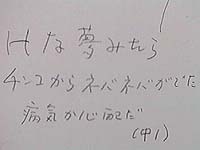 Hな夢みたら
チンコからネバネバがでた
病気か心配だ
(中1)